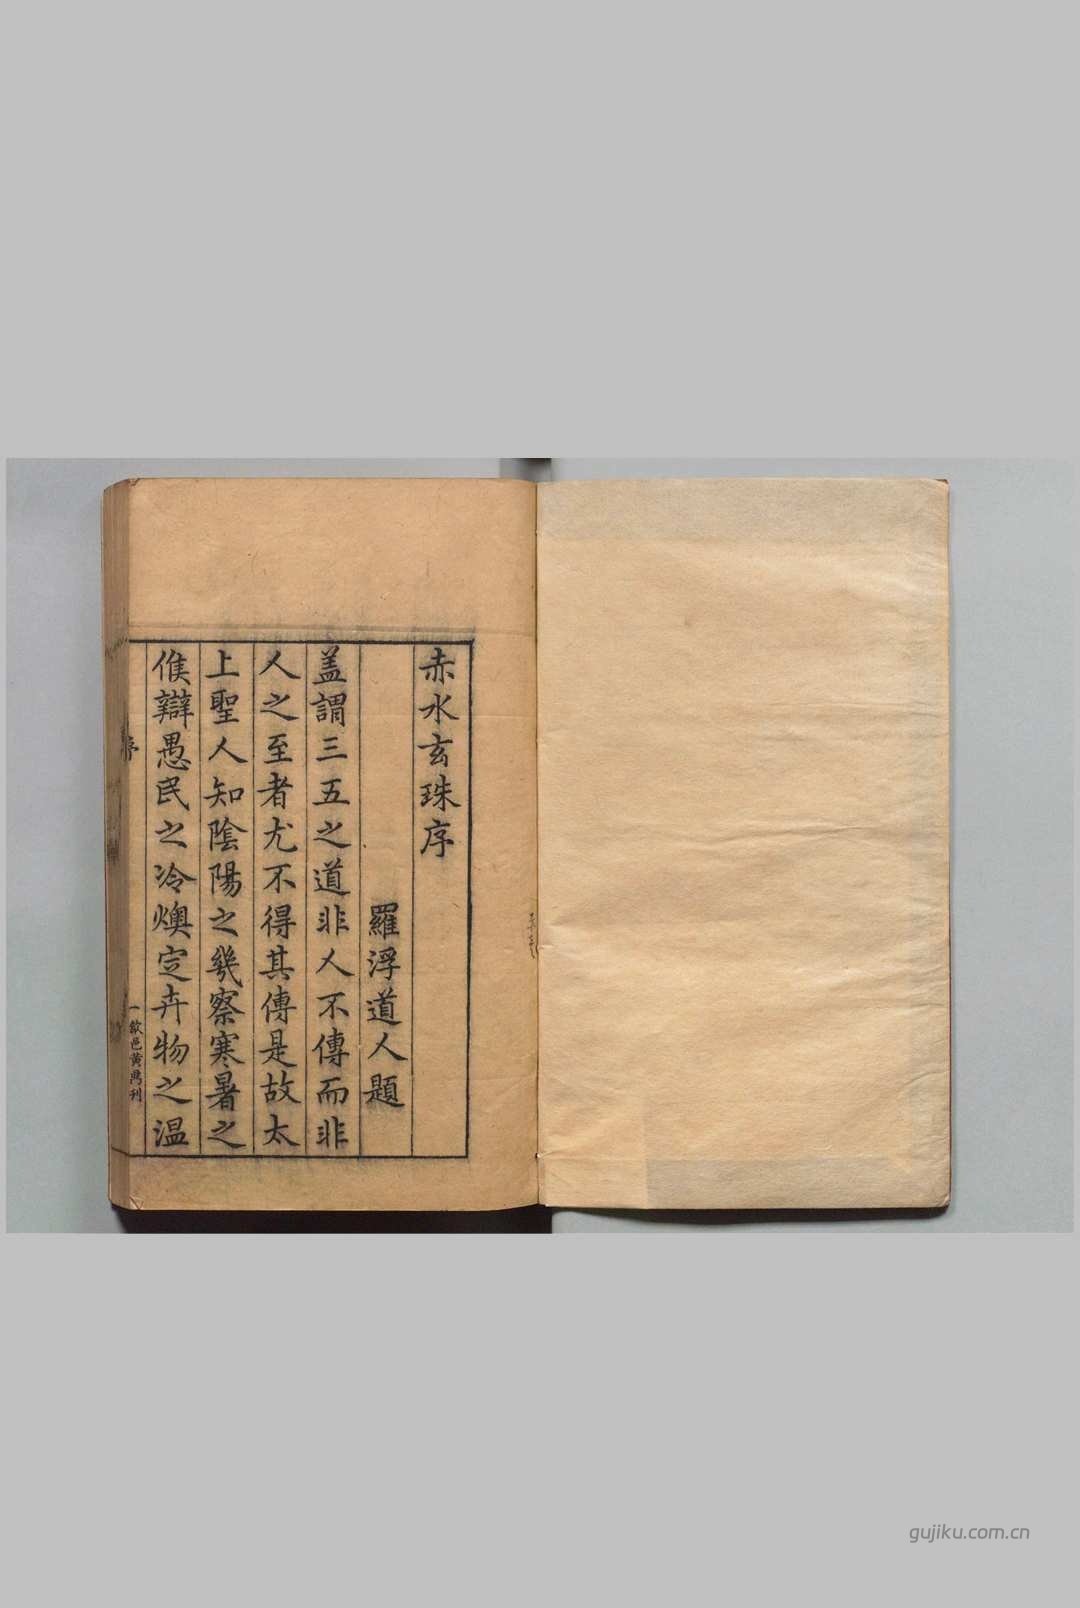 赤水玄珠序
羅浮道人題
盖謂三五之道非人不傳而非
人之至者尤不得其傳是故太
上聖人知陰陽之幾察寒暑之
候辯愚民之冷燠定卉物之温
序
一
歙邑黄鼎刊
gujiku.com.cn